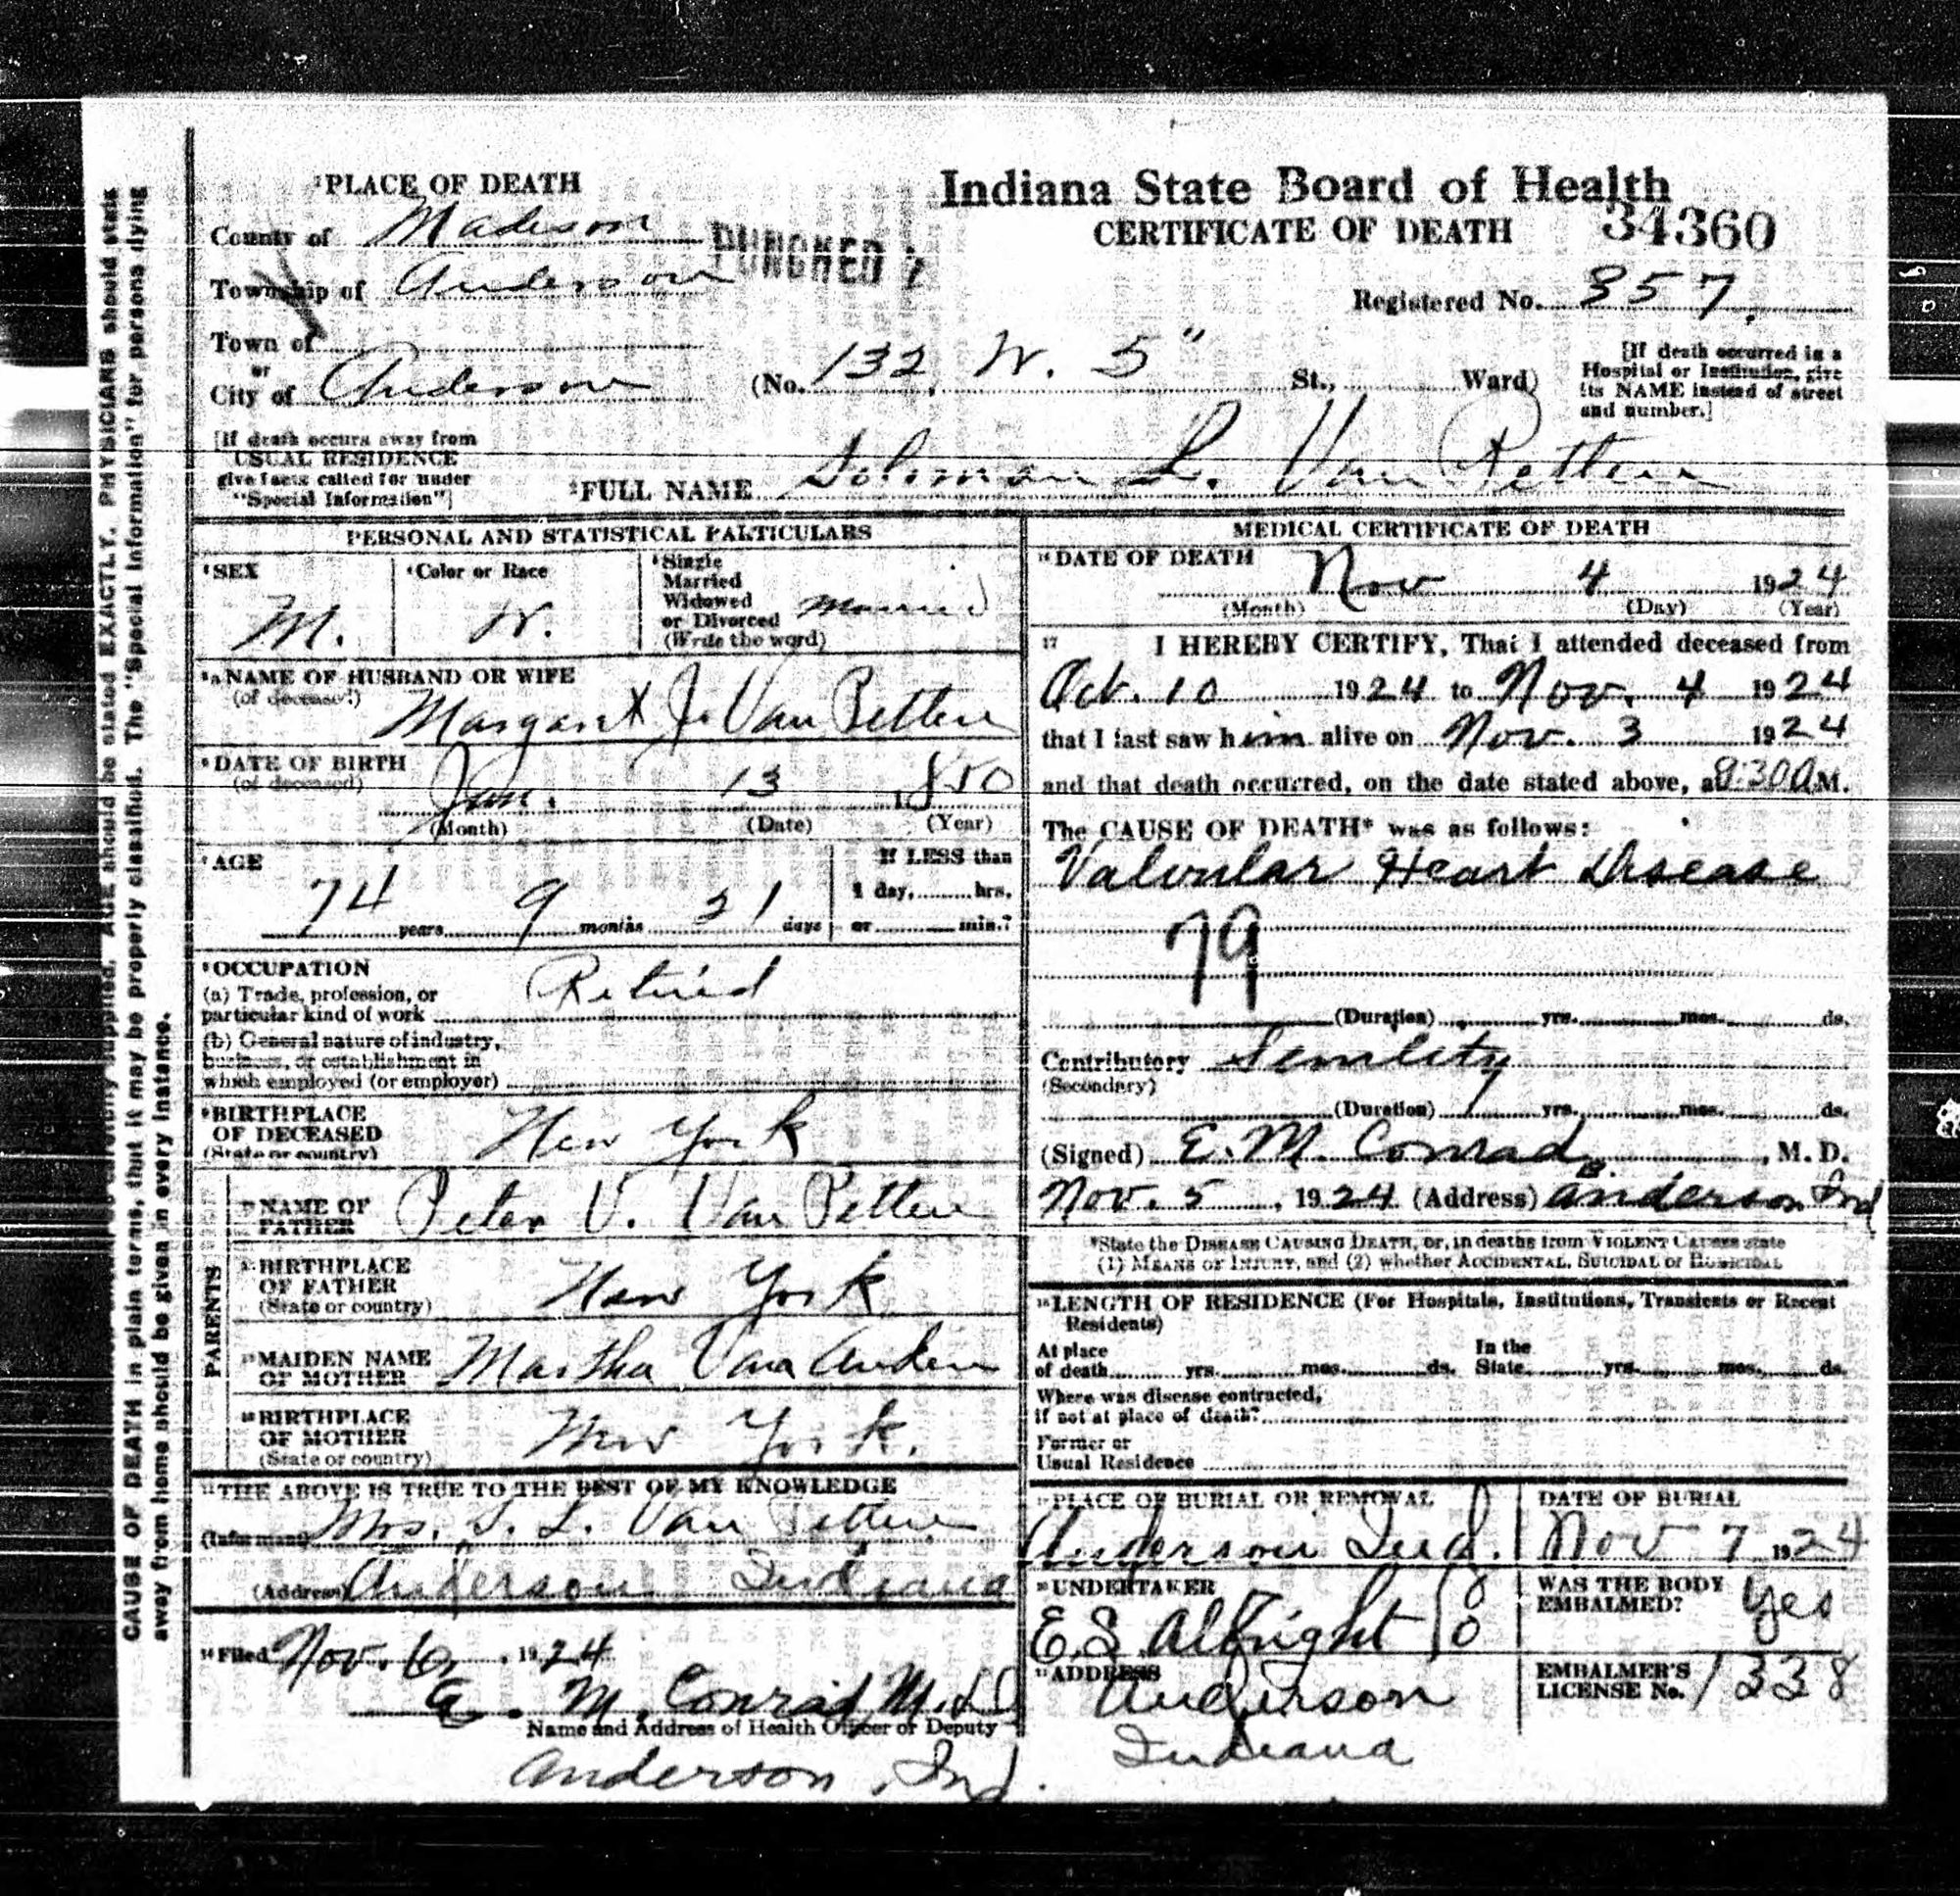 PLACE OF DEATH
County of Madison
Township of Anderson
Town of
or
City of Anderson
PUNCHED
Indiana State Board of Health
CERTIFICATE OF DEATH 34360
Registered No. 357.
(No. 132 W. 5" St., Ward)
[If death occurred in a
Hospital or Institution, give
its NAME instead of street
and number.]
[If death occurs away from
USUAL RESIDENCE
give facts called for under
"Special Information"]
FULL NAME Soloman L. Van Petten
PERSONAL AND STATISTICAL PARTICULARS
SEX
M.
Color or Race
W.
Single
Married
Widowed
or Divorced
(Write the word)
Married
NAME OF HUSBAND OR WIFE
(of deceased)
Margaret J. Van Petten
DATE OF BIRTH
(of deceased)
Jan. 13 1850
(Month) (Date) (Year)
AGE
74 years 9 months 21 days
If LESS than
1 day, hrs.
or min.?
OCCUPATION
(a) Trade, profession, or
particular kind of work
Retired
(b) General nature of industry,
business, or establishment in
which employed (or employer)
BIRTHPLACE
OF DECEASED
(State or country)
New York
PARENTS
NAME OF
FATHER
Peter V. Van Petten
BIRTHPLACE
OF FATHER
(State or country)
New York
MAIDEN NAME
OF MOTHER
Martha Van Anden
BIRTHPLACE
OF MOTHER
(State or country)
New York.
THE ABOVE IS TRUE TO THE BEST OF MY KNOWLEDGE
(Informant) Mrs. S. L. Van Petten
(Address) Anderson Indiana
Filed Nov. 6, 1924
M. Conrad M.D
Name and Address of Health Officer or Deputy
Anderson, Ind.
MEDICAL CERTIFICATE OF DEATH
DATE OF DEATH
Nov 4 1924
(Month) (Day) (Year)
17 I HEREBY CERTIFY, That I attended deceased from
Oct. 10 1924 to Nov. 4 1924
that I last saw him alive on Nov. 3 1924
and that death occurred, on the date stated above, at :30 A M.
The CAUSE OF DEATH* was as follows:
Valvular Heart Disease
79
(Duration) yrs. mos. ds.
Contributory Senility
(Secondary)
(Duration) yrs. mos. ds.
(Signed) E. M. Conrad, M. D.
B.
Nov. 5, 1924 (Address) Anderson Ind
*State the DISEASE CAUSING DEATH, or, in deaths from VIOLENT CAUSES state
(1) MEANS OF INJURY, and (2) whether ACCIDENTAL, SUICIDAL or HOMICIDAL
LENGTH OF RESIDENCE (For Hospitals, Institutions, Transients or Recent
Residents)
At place
of death yrs. mos. ds.
In the
State yrs. mos. ds.
Where was disease contracted,
if not at place of death?
Former or
Usual Residence
PLACE OF BURIAL OR REMOVAL
Anderson Ind.
DATE OF BURIAL
Nov 7 1924
UNDERTAKER
E.S. Albright
WAS THE BODY
EMBALMED?
yes
ADDRESS
Anderson
Indiana
EMBALMER'S
LICENSE No. 1338
AGE should be stated EXACTLY. PHYSICIANS should state
CAUSE OF DEATH in plain terms, that it may be properly classified. The "Special Information" for persons dying
away from home should be given in every instance.